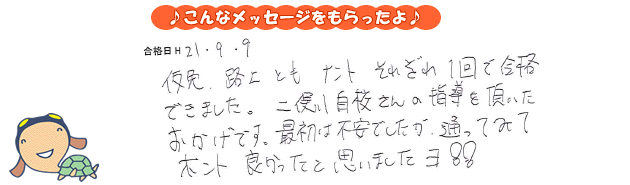 ♪こんなメッセージをもらったよ♪
合格日H 21・9・9
仮免、路上とも ナント それぞれ1回で合格
できました。二俣川自校さんの指導を頂いた
おかげです。最初は不安でしたが、通ってみて
ホント 良かったと思いましたヨ 88